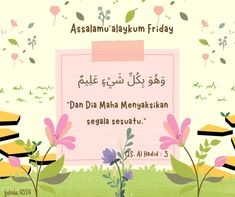 Assalamu'alaykum Friday
وَهُوَ بِكُلِّ شَيْءٍ عَلِيمٌ
"Dan Dia Maha Menyaksikan
segala sesuatu."
QS. Al Hadid : 3